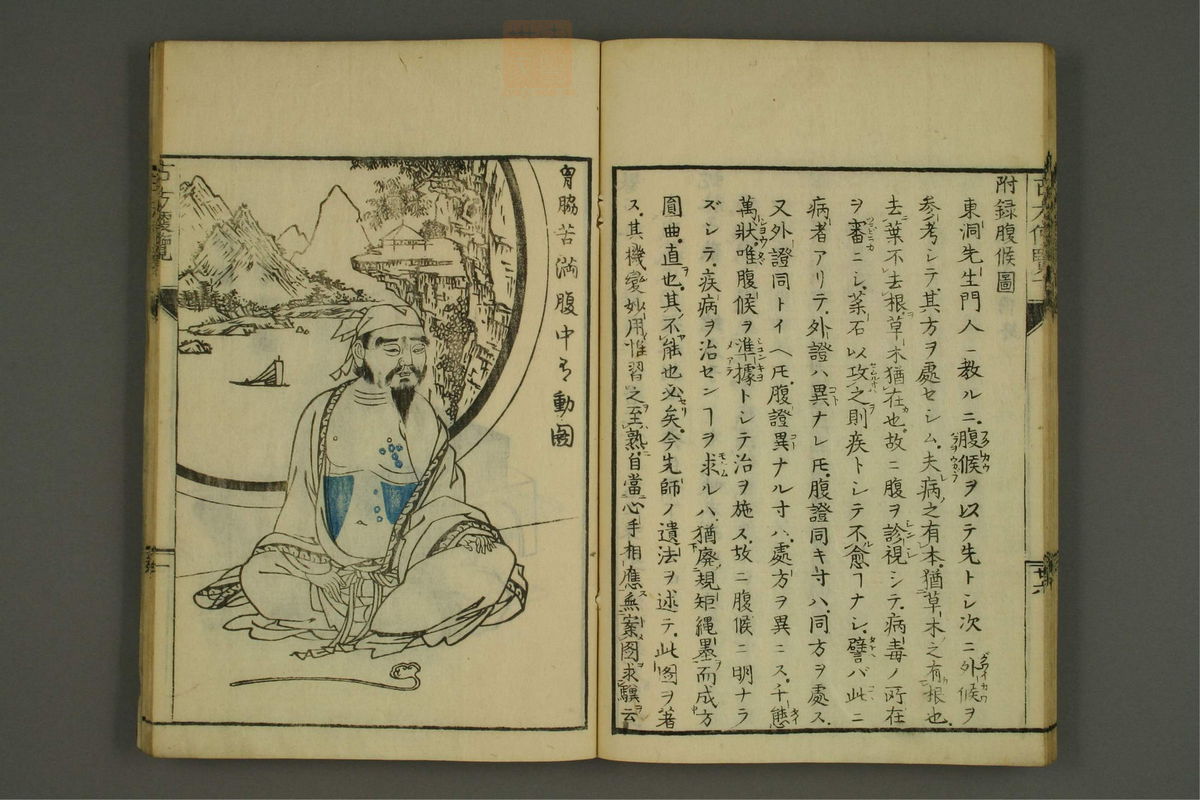 附録腹候圖
東洞先生門人ニ教ルニ腹候ヲ以テ先トシ次ニ外候ヲ
参考シテ其方ヲ處セシム夫病之有本猶草木之有根也
去葉不去根草木猶在也故ニ腹ヲ診視シテ病毒ノ所在
ヲ審ニシ薬石以攻之則疾トシテ不愈ヿナシ譬バ此ニ
病者アリテ外證ハ異ナレ𪜈腹證同キ寸ハ同方ヲ處ス
又外證同トイヘ𪜈腹證異ナル寸ハ處方ヲ異ニス千態
萬狀唯腹候ヲ準據トシテ治ヲ施ス故ニ腹候ニ明ナラ
ズシテ疾病ヲ治センヿヲ求ルハ猶廃規矩縄墨而成方
圓曲直也其不能也必矣今先師ノ遺法ヲ述テ此圖ヲ著
ス其機變妙用惟習之至熟自當心手相應無案图求驥云
胷脇苦满腹中有動圖